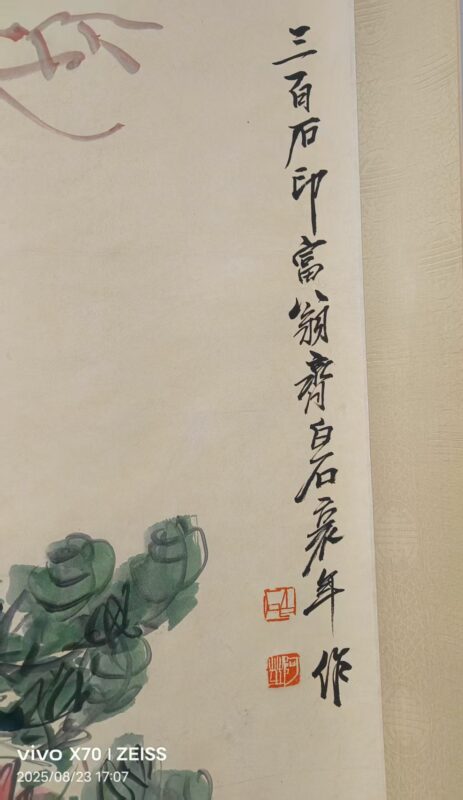 三百石印富翁齊白石衰年作
白石
阿芝
vivo X70 | ZEISS
2025/08/23 17:07